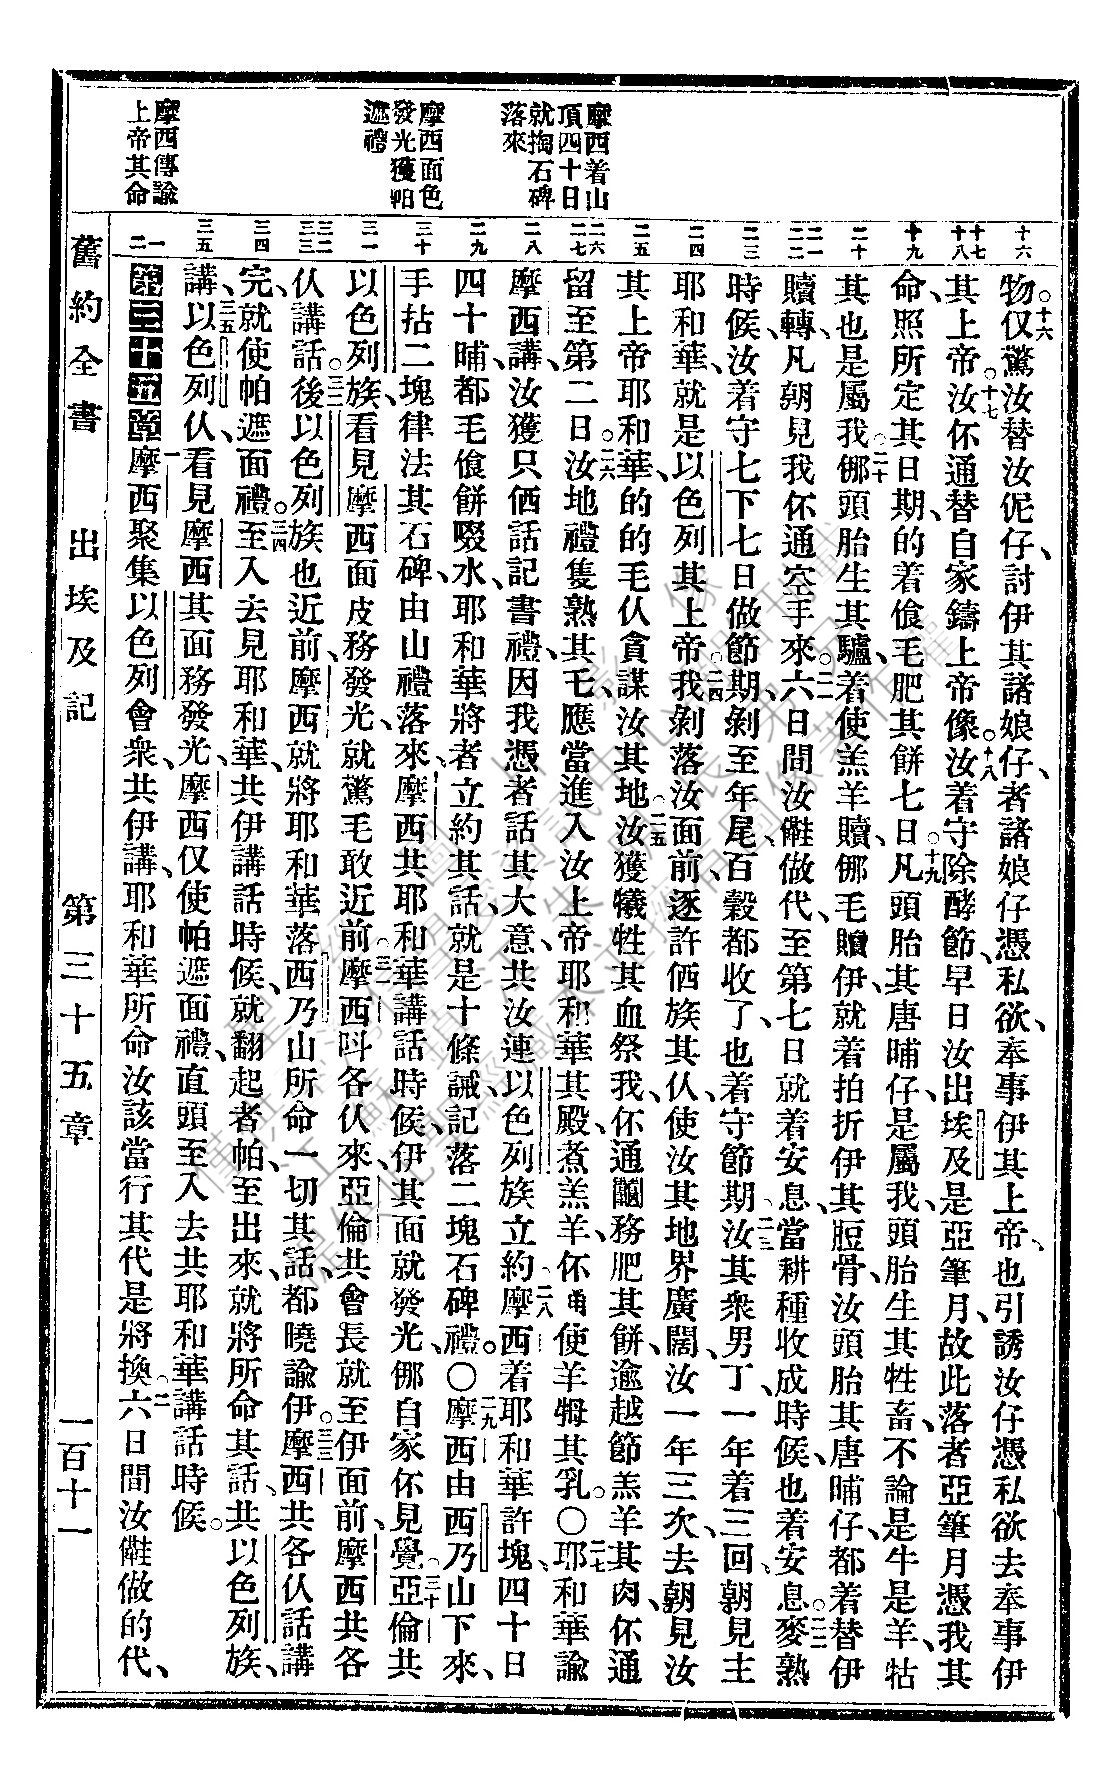 摩西着山
頂四十日
就掏石碑
落來
摩西面色
發光獲帕
遮禮
摩西傳諭
上帝其命
十六
十七
十八
十九
二十
二一
二二
二三
二四
二五
二六
二七
二八
二九
三十
三一
三二
三三
三四
三五
一
二
物。十六仅驚汝替汝伲仔、討伊其諸娘仔、者諸娘仔憑私欲、奉事伊其上帝、也引誘汝仔憑私欲去奉事伊
其上帝。十七汝伓通替自家鑄上帝像。十八汝着守除酵節、早日汝出埃及、是亞筆月、故此落者亞筆月憑我其
命、照所定其日期、的着飡毛肥其餅七日。十九凡頭胎其唐晡仔、是屬我、頭胎生其牲畜、不論是牛是羊、牯
其也是屬我。二十㑚頭胎生其驢、着使羔羊贖、㑚毛贖伊、就着拍折伊其脰骨、汝頭胎其唐晡仔、都着替伊
贖轉、凡朝見我伓通空手來。二一六日間汝儺做代、至第七日就着安息、當耕種收成時候、也着安息。二二麥熟
時候、汝着守七下七日做節期、剝至年尾、百穀都收了、也着守節期。二三汝其衆男丁、一年着三回朝見主
耶和華、就是以色列其上帝。二四我剝落汝面前逐許価族其仈、使汝其地界廣闊、汝一年三次、去朝見汝
其上帝耶和華、的的毛仈貪謀汝其地。二五汝獲犧牲其血祭我、伓通𪘲務肥其餅、逾越節羔羊其肉、伓通
留至第二日。二六汝地禮隻熟其乇、應當進入汝上帝耶和華其殿、煮羔羊、伓甭使羊姆其乳。〇二七耶和華諭
摩西講、汝獲只価話記書禮、因我憑者話其大意、共汝連以色列族立約。二八摩西着耶和華許塊、四十日
四十晡、都毛飡餅啜水、耶和華將者立約其話、就是十條誡、記落二塊石碑禮。〇二九摩西由西乃山下來、
手拈二塊律法其石碑、由山禮落來、摩西共耶和華講話時候、伊其面就發光、㑚自家伓見覺。三十亞倫共
以色列族、看見摩西面皮務發光、就驚毛敢近前。三一摩西呌各仈來、亞倫共會長就至伊面前、摩西共各
仈講話。三二後以色列族也近前、摩西就將耶和華落西乃山所命一切其話、都曉諭伊。三三摩西共各仈話講
完、就使帕遮面禮。三四至入去見耶和華、共伊講話時候、就翻起者帕、至出來、就將所命其話、共以色列族
講、三五以色列仈看見摩西其面務發光、摩西仅使帕遮面禮、直頭至入去共耶和華講話時候。
第三十五章 一摩西聚集以色列會衆、共伊講、耶和華所命汝該當行其代是將換。二六日間汝儺做的代、
舊約全書 出埃及記 第三十五章 一百十一